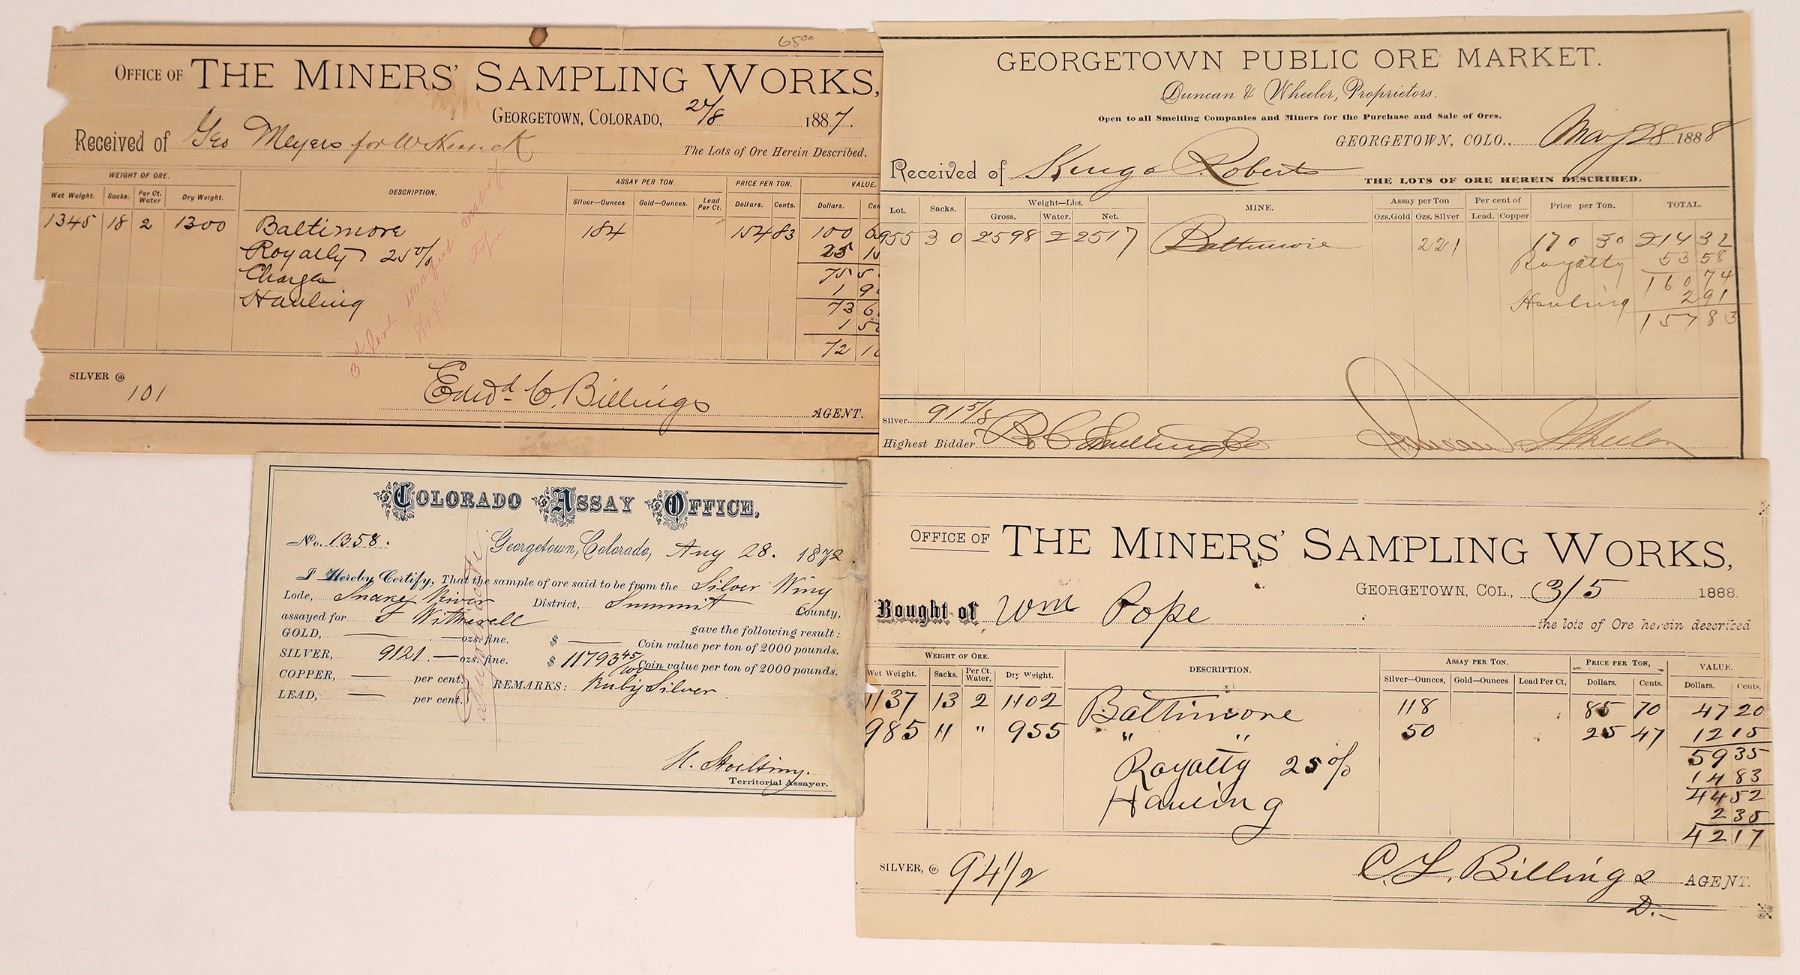 6500
OFFICE OF THE MINERS' SAMPLING WORKS,
GEORGETOWN, COLORADO, 27/8 1887.
Received of Geo Meyers for W The Lots of Ore Herein Described.
WEIGHT OF ORE. DESCRIPTION. ASSAY PER TON. PRICE PER TON. VALUE.
Wet Weight. Sacks. Per Ct. Water Dry Weight. Silver—Ounces. Gold—Ounces. Lead Per Ct. Dollars. Cents. Dollars. Cen
1345 18 2 1300 Baltimore 184 154 83 100 6
Royalty 25 % 25 1
Charge 75 5
Hauling 1 9
73 6
1 5
72 1
SILVER @ 101
Edwd. C. Billings AGENT.
GEORGETOWN PUBLIC ORE MARKET.
Duncan & Wheeler, Proprietors.
Open to all Smelting Companies and Miners for the Purchase and Sale of Ores.
GEORGETOWN, COLO., May 28 1888
Received of Roberts THE LOTS OF ORE HEREIN DESCRIBED.
Lot. Sacks. Weight—Lbs. MINE. Assay per Ton Per cent of Price per Ton. TOTAL.
Gross. Water. Net. Ozs.Gold Ozs. Silver Lead. Copper
955 30 2598 2 2517 Baltimore 221 170 30 214 32
Royalty 53 58
160 74
Hauling 2 91
157 83
Silver 91 5/8
Highest Bidder
Duncan & Wheeler
COLORADO ASSAY OFFICE,
No. 1358. Georgetown, Colorado, Aug 28. 1872
I Hereby Certify, That the sample of ore said to be from the Silver Wing
Lode, Snake River District, Summit County,
assayed for F Witherell gave the following result:
GOLD, — ozs. fine. $ — Coin value per ton of 2000 pounds.
SILVER, 9121. — ozs. fine. $ 11793 45/100 Coin value per ton of 2000 pounds.
COPPER, — per cent. REMARKS: Ruby Silver
LEAD, — per cent.
H. Stoelting.
Territorial Assayer.
OFFICE OF THE MINERS' SAMPLING WORKS,
GEORGETOWN, COL., 3/5 1888.
Bought of Wm Pope the lots of Ore herein described
WEIGHT OF ORE. DESCRIPTION. ASSAY PER TON. PRICE PER TON, VALUE.
Wet Weight. Sacks. Per Ct. Water, Dry Weight. Silver—Ounces, Gold—Ounces Lead Per Ct, Dollars. Cents. Dollars. Cents,
1137 13 2 1102 Baltimore 118 85 70 47 20
985 11 " 955 " " 50 25 47 12 15
59 35
Royalty 25 % 14 83
44 52
Hauling 2 35
42 17
SILVER, @ 94 1/2
C. L. Billings AGENT.
D.—